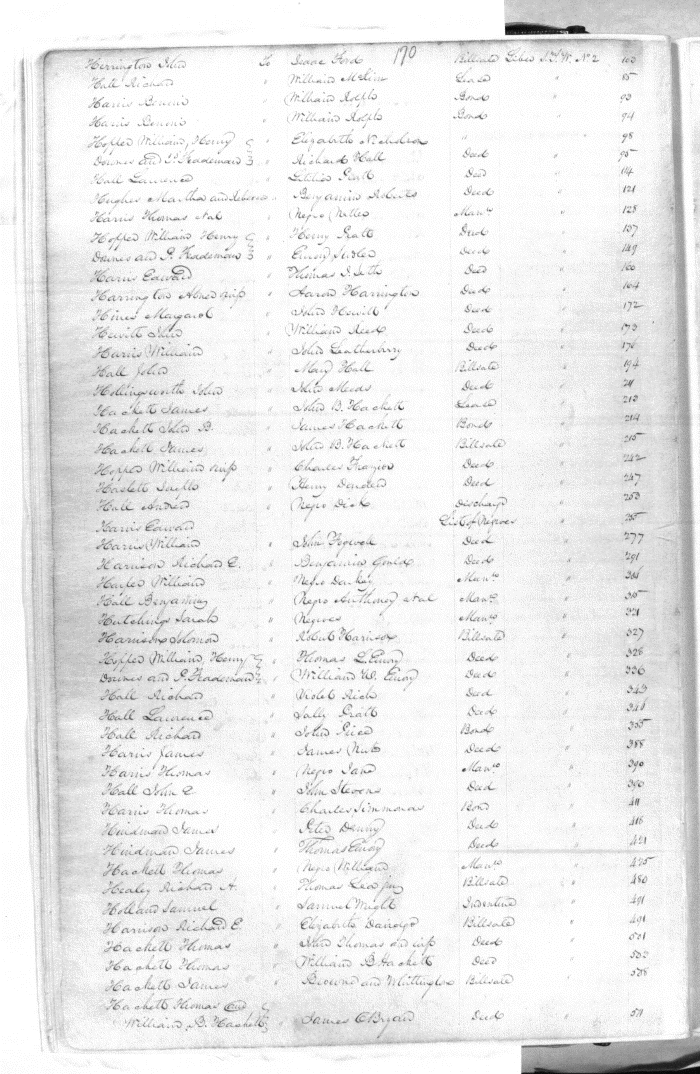 170
Herrington John To Isaac Ford Billsale Liber J.T.W. No 2 102
Hall Richard " William Lease " 85
Harris Benoni " William Rolph Bond " 93
Harris Benoni " William Rolph Bond " 94
Hopper William, Henry " Elizabeth Nicholson " " 98
Downes and P. " Richard Hall Deed " 95
Hall Laurence " Pratt Deed " 114
Hughes Martha and Rebecca " Benjamin Roberts Deed " 121
Harris Thomas et al " Negro Manuo " 128
Hopper William Henry " Henry Pratt Deed " 137
Downes and P. " Emory Deed " 149
Harris Edward " Thomas Deed " 160
Harrington Abner " Aaron Harrington Deed " 164
Hines Margaret " John Hewitt Deed " 172
Hewitt John " William Reed Deed " 173
Harris William " John Leatherbury Deed " 178
Hall John " Mary Hall Billsale " 194
Hollingsworth John " John Meeds Deed " 211
Hackett James " John B. Hackett Lease " 213
Hackett John B. " James Hackett Bond " 214
Hackett James " John B. Hackett Billsale " 215
Hopper William " Charles Frazier Deed " 242
Haslett " Henry Deed " 247
Hall Andrew " Negro Dick Discharge " 253
Harris Edward List of Negroes " 255
Harris William " John Deed " 277
Harrison Richard E. " Benjamin Gould Deed " 291
William " Negro Manuo "
Hall Benjamin " Negro Anthony et al Manuo " 315
Hutchings Sarah " Negroes Manuo " 321
Harrison Solomon " Robert Harrison Billsale " 327
Hopper William, Henry " Thomas L. Emory Deed " 328
Downes and P. " William W. Emory Deed " 336
Hall Richard " Violet Rich Deed " 343
Hall Laurence " Sally Pratt Deed "
Hall Richard " John Price Bond " 355
Harris James " James Deed " 388
Harris Thomas " Negro Jane Manuo " 390
Hall John E " John Stevens Deed " 390
Harris Thomas " Charles Simmonds Bond " 411
Hindman James " Peter Denny Deed " 416
Hindman James " Thomas Emory Deed " 421
Hackett Thomas " Negro William Manuo " 425
Healey Richard H. " Thomas Billsale " 480
Holland Samuel " Samuel Wright Indenture " 491
Harrison Richard E. " Elizabeth Billsale " 491
Hackett Thomas " John Thomas Deed " 501
Hackett Thomas " William B. Hackett Deed " 503
Hackett James " and Whittington Billsale " 508
Hackett Thomas and
William, B. Hackett " James O'Bryon Deed " 511